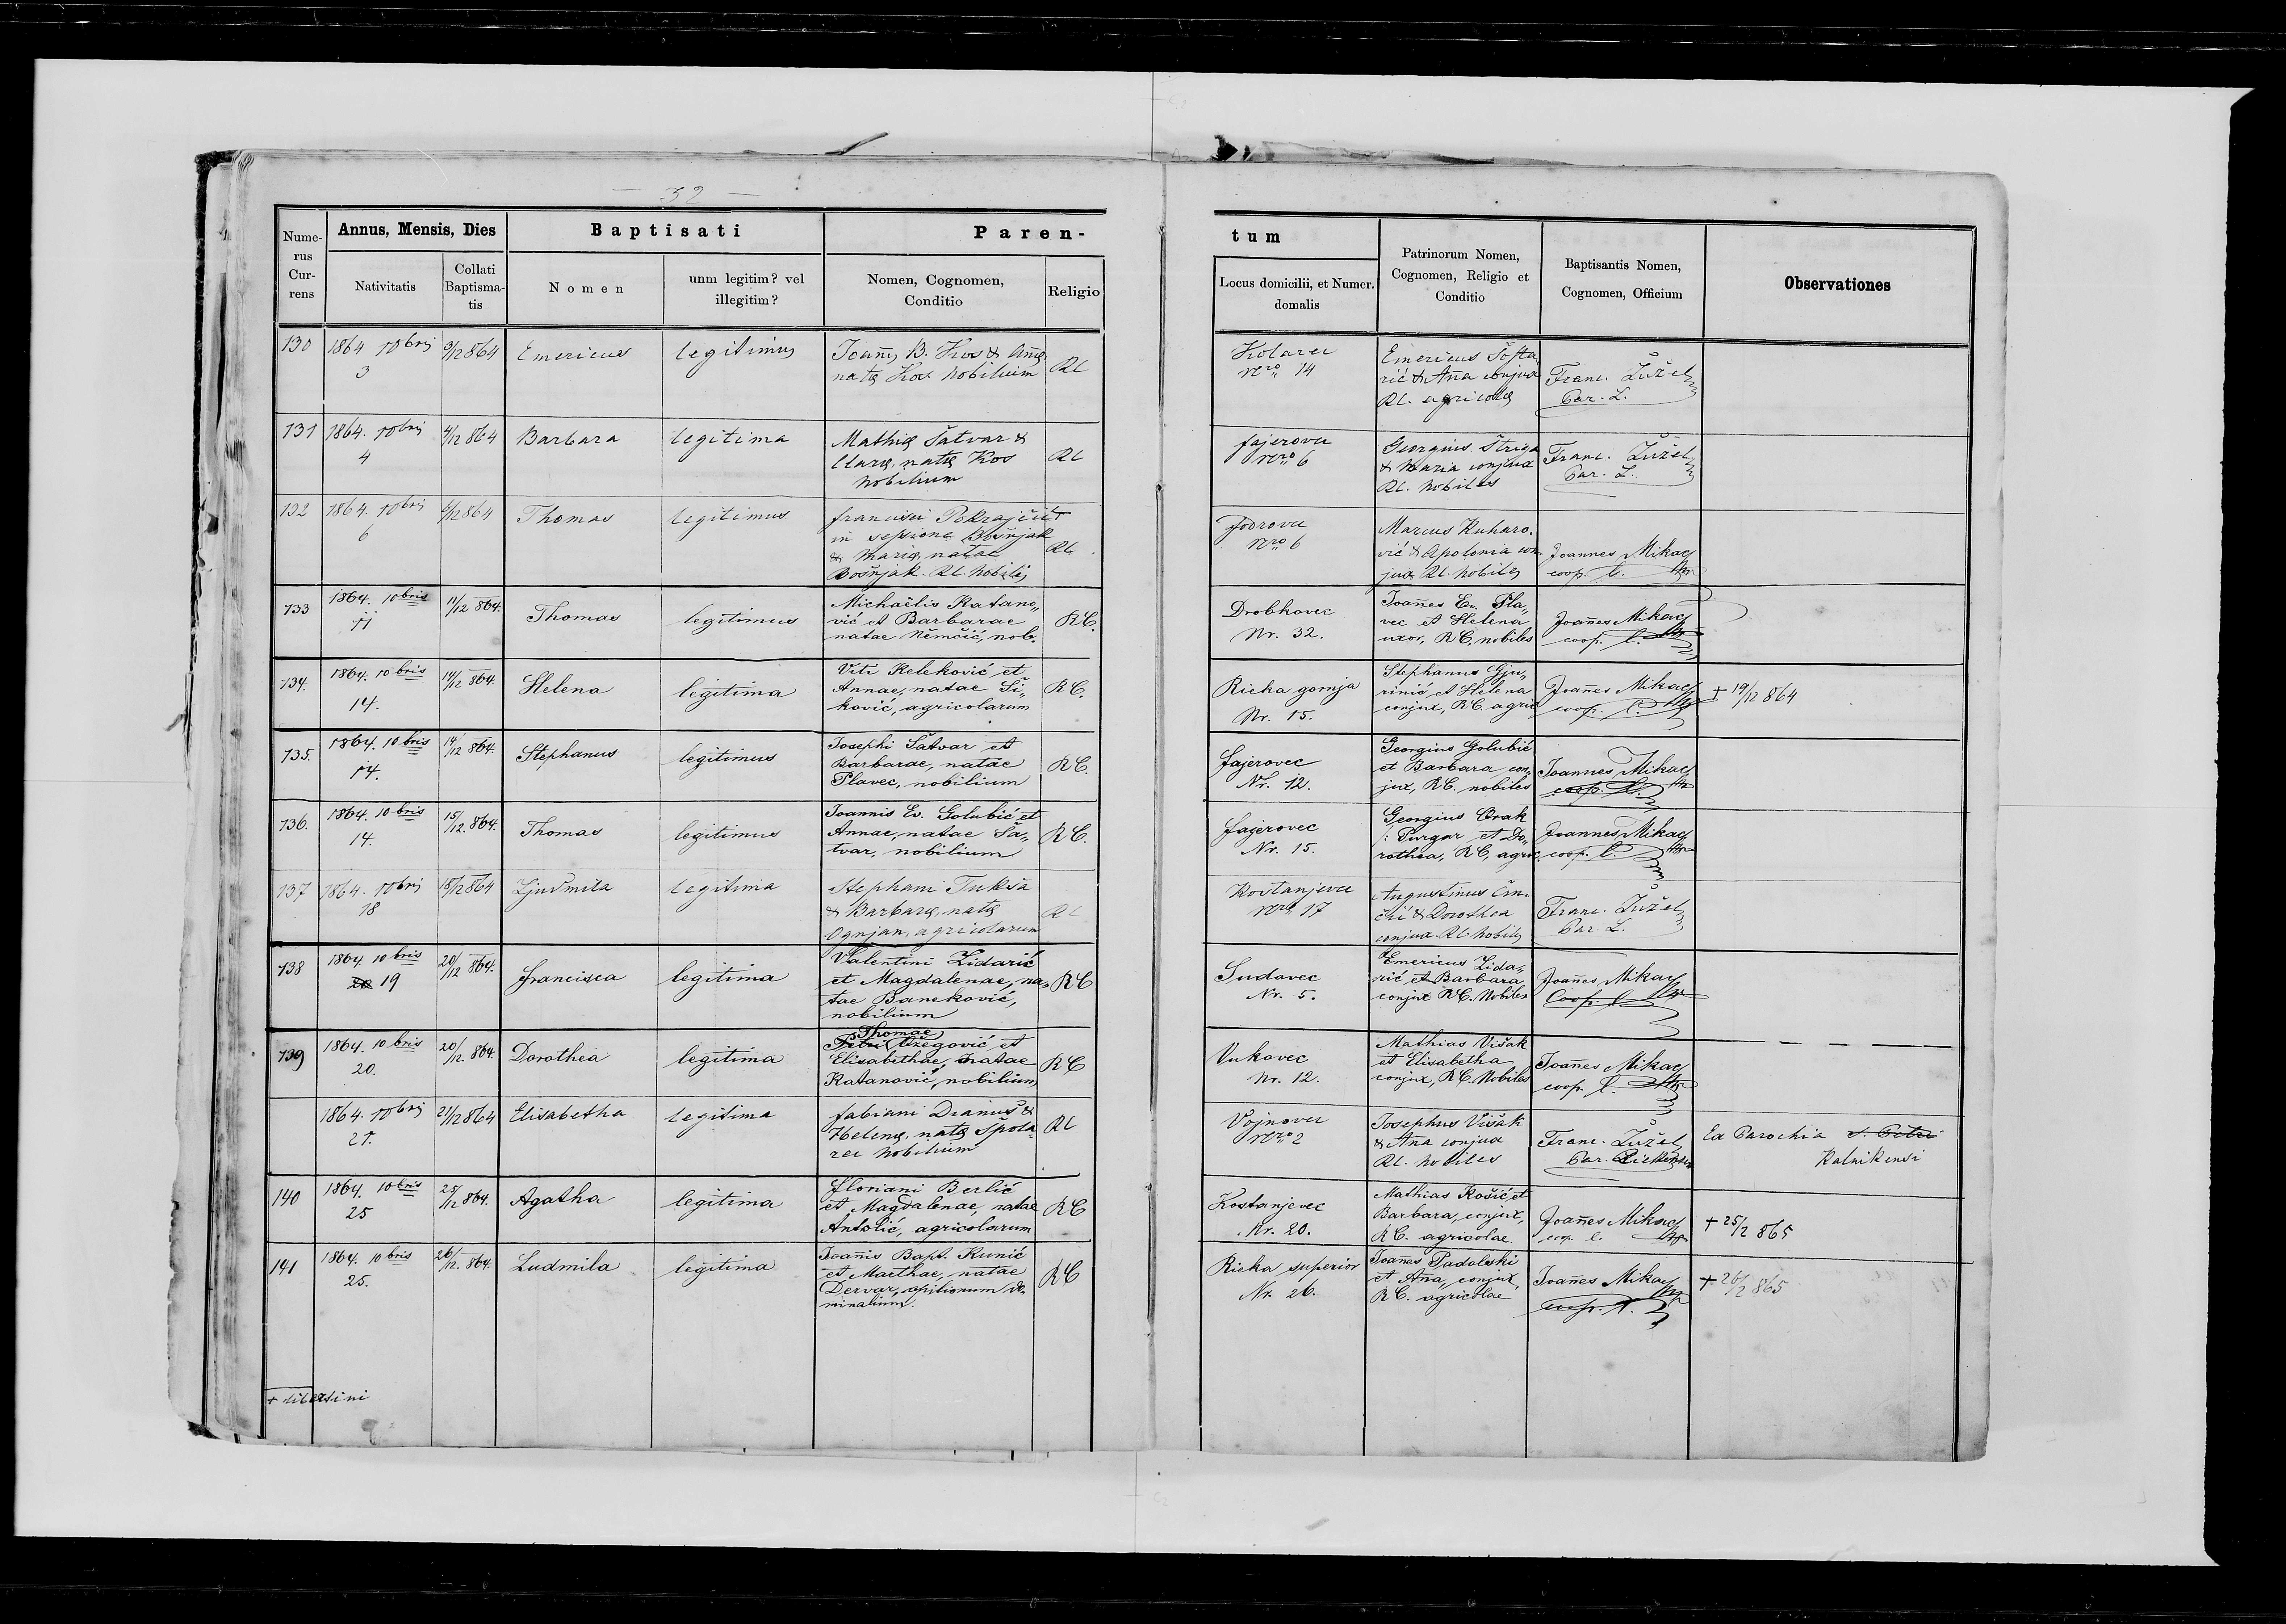 — 32 —
Numerus Currens | Annus, Mensis, Dies | Baptisati | Parentum | Patrinorum Nomen, Cognomen, Religio et Conditio | Baptisantis Nomen, Cognomen, Officium | Observationes
Nativitatis | Collati Baptismatis | Nomen | unm legitim? vel illegitim? | Nomen, Cognomen, Conditio | Religio | Locus domicilii, et Numer. domalis
130 | 1864 10bris 3 | 9/12 864 | Emericus | legitimus | Joannis B. Kos & Annę natę Kos Nobilium | RC | Kolarec Nro 14 | Emericus Šoštarić & Aña conjux RC. agricolę | Franc. Žužel Par. L.
131 | 1864. 10bris 4 | 4/12 864 | Barbara | legitima | Mathię Šatvar & Clarę, natę Kos Nobilium | RC | Fajerovec Nro 6 | Georgius Štriga & Maria conjux RC. Nobiles | Franc. Žužel Par. L.
132 | 1864. 10bris 6 | 6/12 864 | Thomas | legitimus | Francisci Pokrajčić + in sessione Bošnjak & Marię, natae Bošnjak. RC. Nobiles | RC. | Fodrovec Nro 6 | Marcus Kuharović & Apolonia conjux RC. Nobiles | Joannes Mikac coop. l.
133 | 1864. 10bris 11 | 11/12 864. | Thomas | legitimus | Michaëlis Katano„ vić et Barbarae natae Němčić, nob. | RC. | Drobkovec Nr. 32. | Joañes Ev. Pla„ vec et Helena uxor, RC, nobiles | Joañes Mikac coop. l.
134. | 1864. 10bris 14. | 14/12 864. | Helena | legitima | Viti Keleković et Annae, natae Si„ ković, agricolarum | RC. | Rieka gornja Nr. 15. | Stephanus Gju„ rinić, et Helena conjux, RC. agric | Joañes Mikac coop. l. | + 19/12 864
135. | 1864. 10bris 14. | 14/12 864. | Stephanus | legitimus | Josephi Šatvar et Barbarae, natae Plavec, nobilium | RC. | Fajerovec Nr. 12. | Georgius Golubić et Barbara con„ jux, RC. nobiles | Joannes Mikac coop. l.
136. | 1864. 10bris 14. | 15/12. 864. | Thomas | legitimus | Joannis Ev. Golubić et Annae, natae Ša„ tvar, nobilium | RC. | Fajerovec Nr. 15. | Georgius Orak /: Purgar et Do„ rothea, RC, agric. | Joannes Mikac coop. l.
137 | 1864. 10bris 18 | 18/12 864 | Ljudmila | legitima | Stephani Tukša & Barbarę, natę Ognjan, agricolarum | RC | Kostanjevec Nro 17 | Augustinus & Dorothea conjux. RC. Nobiles | Franc. Žužel Par. L.
138 | 1864 10bris 20 19 | 20/12 864. | Francisca | legitima | Valentini Zidarić et Magdalenae, na„ tae Baneković, nobilium | RC | Sudovec Nr. 5. | Emericus Zida„ rić et Barbara conjux RC. Nobiles | Joañes Mikac Coop. l.
139 | 1864. 10bris 20. | 20/12 864. | Dorothea | legitima | Thomae Petri Ožegović et Elisabethae, natae Katanović, nobilium | RC | Vukovec Nr. 12. | Mathias Višak et Elisabetha conjux, RC. Nobiles | Joañes Mikac coop. l.
1864. 10bris 21. | 21/12 864 | Elisabetha | legitima | Fabiani Dianuš & Helenę, natę Špola„ rec Nobilium | RC | Vojnovec Nro 2 | Josephus Višak & Aña conjux RC. Nobiles | Franc. Žužel Par. | Ex Parochia S. Petri Kalnikensi
140 | 1864. 10bris 25 | 25/12 864. | Agatha | legitima | Floriani Berlić et Magdalenae, natae Antolić, agricolarum | RC | Kostanjevec Nr. 20. | Mathias Košić et Barbara, conjux, RC. agricolae | Joañes Mikac coop. l. | + 25/2 865
141 | 1864. 10bris 25. | 26/12. 864. | Ludmila | legitima | Joañis Bapt. Kunić et Marthae, natae Dervar, opilionum do„ minalium. | RC | Rieka superior Nr. 26. | Joañes Padolski et Aña, conjux, RC. agricolae | Joañes Mikac coop. l. | + 26/2 865
+ libertini